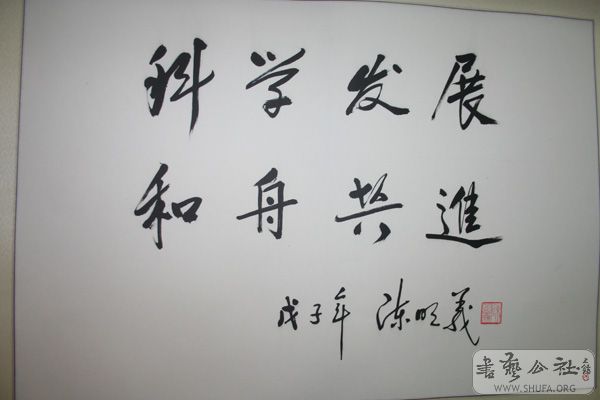 科学发展
和舟共進
戊子年 陈明义
書藝公社
WWW.SHUFA.ORG